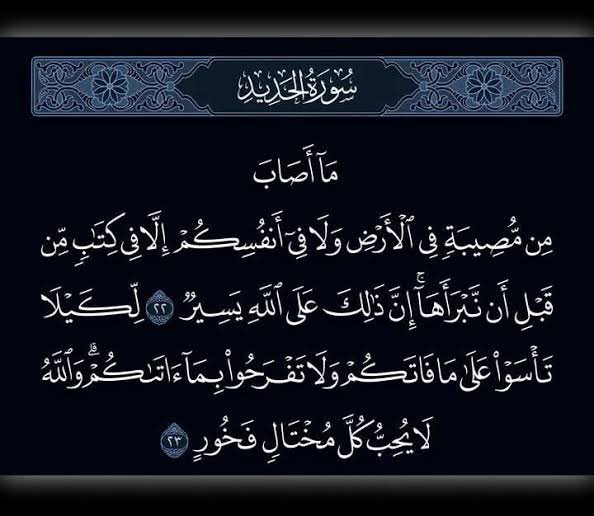 سُورَةُ الحَدِيدِ
مَآ أَصَابَ
مِن مُّصِيبَةٍ فِي ٱلْأَرْضِ وَلَا فِيٓ أَنفُسِكُمْ إِلَّا فِي كِتَٰبٍ مِّن
قَبْلِ أَن نَّبْرَأَهَآ ۚ إِنَّ ذَٰلِكَ عَلَى ٱللَّهِ يَسِيرٌ ٢٢ لِّكَيْلَا
تَأْسَوْا۟ عَلَىٰ مَا فَاتَكُمْ وَلَا تَفْرَحُوا۟ بِمَآ ءَاتَىٰكُمْ ۗ وَٱللَّهُ
لَا يُحِبُّ كُلَّ مُخْتَالٍ فَخُورٍ ٢٣